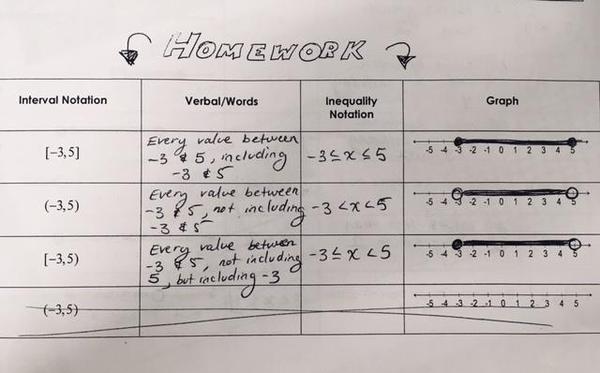 HOMEWORK
Interval Notation Verbal/Words Inequality Notation Graph
[-3, 5]
Every value between
-3 & 5, including
-3 & 5
-3 ≤ x ≤ 5
-5 -4 -3 -2 -1 0 1 2 3 4 5
(-3, 5)
Every value between
-3 & 5, not including
-3 & 5
-3 < x < 5
-5 -4 -3 -2 -1 0 1 2 3 4 5
[-3, 5)
Every value between
-3 & 5, not including
5, but including -3
-3 ≤ x < 5
-5 -4 -3 -2 -1 0 1 2 3 4 5
(-3, 5)
-5 -4 -3 -2 -1 0 1 2 3 4 5